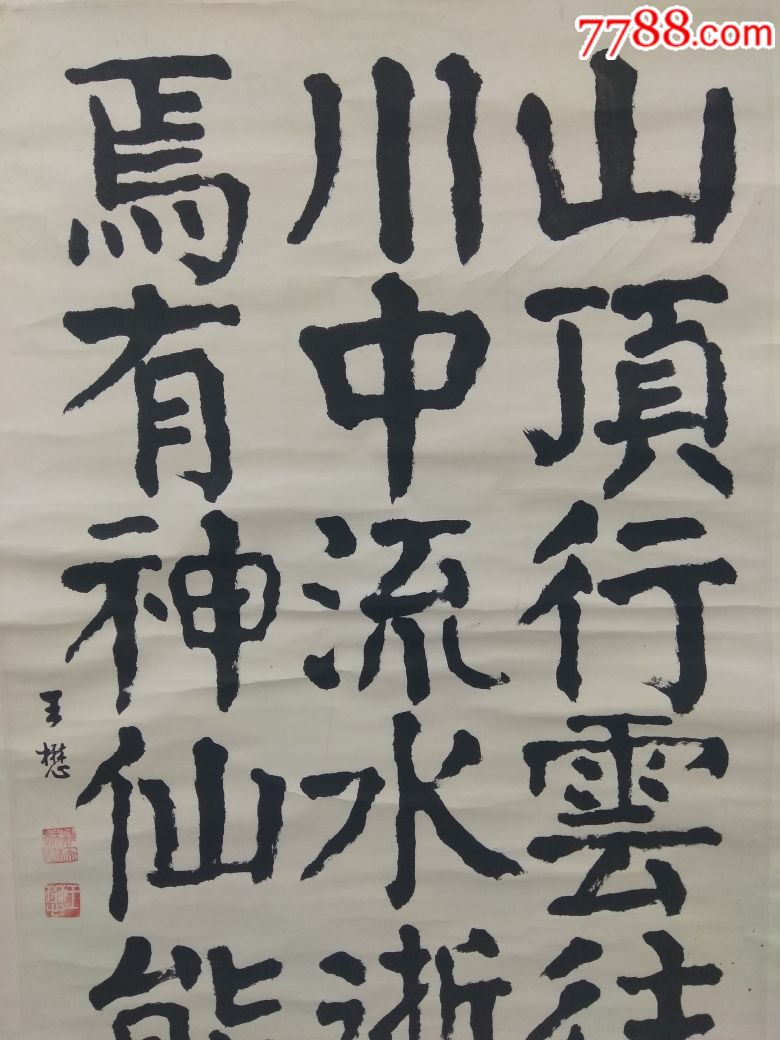 7788.com
山頂行雲往
川中流水逝
焉有神仙能
王懋